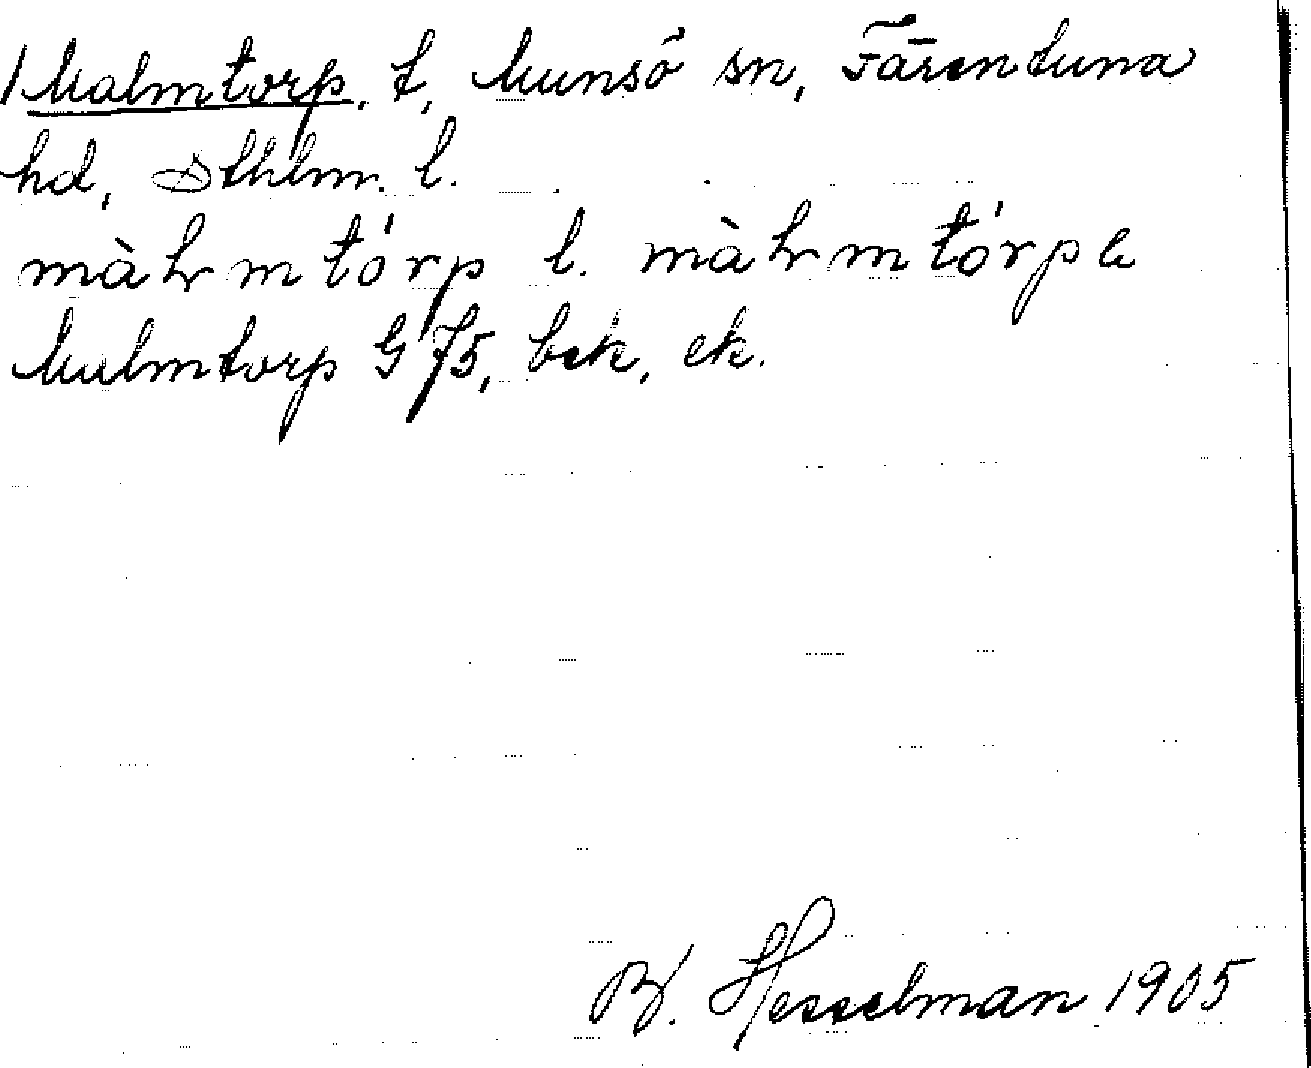 Malmtorp, t, Munsö sn, Färentuna
hd, Sthlm. l.
màhrmtórp l. màhrmtórpa
Malmtorp G 75, bek, ek.
B. Hesselman 1905